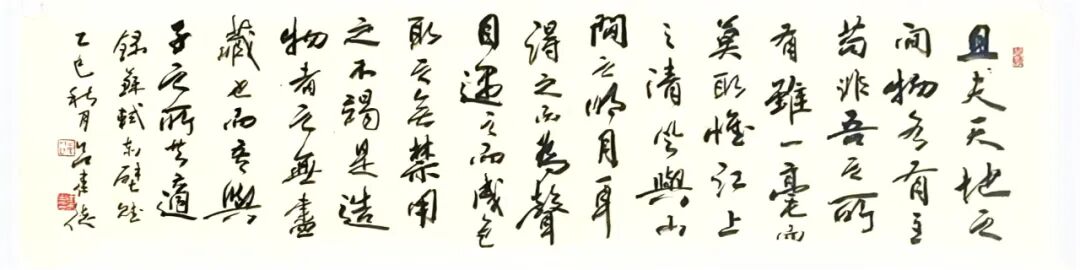 且夫天地之
間物各有主
苟非吾之所
有雖一毫而
莫取惟江上
之清風與山
間之明月耳
得之而為聲
目遇之而成色
取之無禁用
之不竭是造
物者之無盡
藏也而吾與
子之所共適
錄蘇軾赤壁賦
乙巳秋月